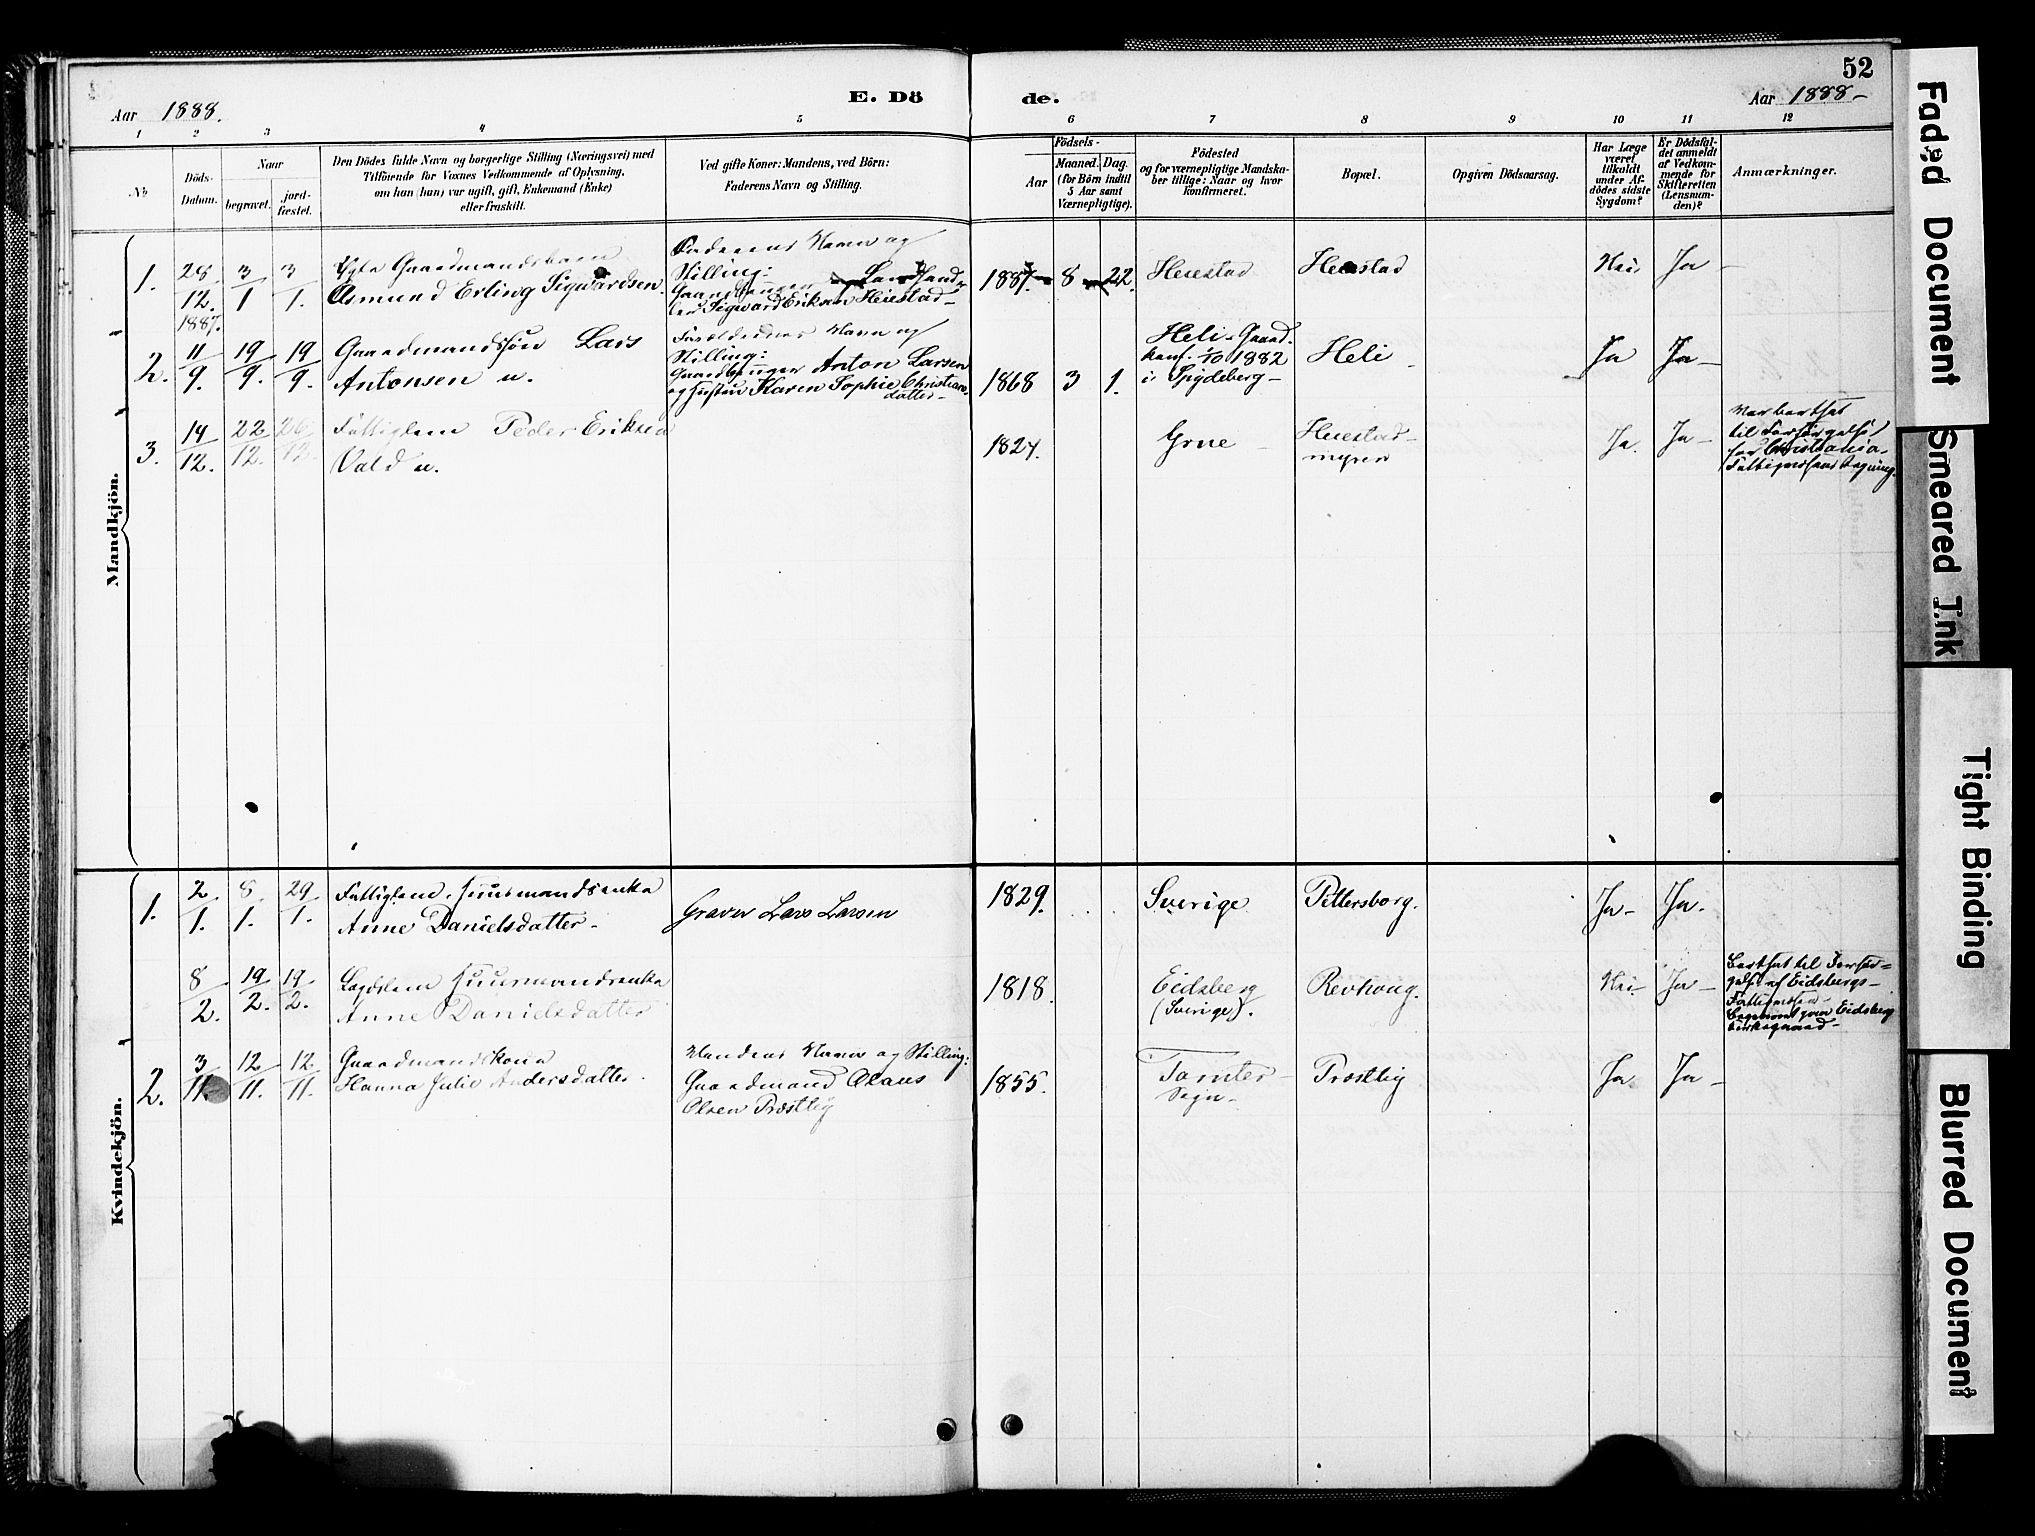 52
Aar 1888.
E. Dö
de.
Aar 1888-
1 2 3 4 5 6 7 8 9 10 11 12
No.
Döds-
Datum.
Naar
begravet.
jord-
fæstet.
Den Dödes fulde Navn og borgerlige Stilling (Næringsvei) med
Tilföiende for Voxnes Vedkommende af Oplysning,
om han (hun) var ugift, gift, Enkemand (Enke)
eller fraskilt.
Ved gifte Koner: Mandens, ved Börn:
Faderens Navn og Stilling.
Födsels-
Aar
Maaned.
Dag.
(for Börn indtil
5 Aar samt
Værnepligtige).
Födested
og for værnepligtige Mandska-
ber tillige: Naar og hvor
konfirmeret.
Bopæl.
Opgiven Dödsaarsag.
Har Læge
været
tilkaldt
under Af-
dödes sidste
Sygdom?
Er Dödsfal-
det anmeldt
af Vedkom-
mende for
Skifteretten
(Lensman-
den)?
Anmærkninger.
Mandkjön.
1. 28/12. 1887. 3/1 3/1.
Ægte Gaardmandsbarn
Asmund Erling Sigwardsen.
Faderens Navn og
Stilling:
Gaardbruger Landhand-
ler Sigward Eriksen Heiestad-
1887 8 22.
Heiestad
Heiestad
Nei
Ja -
2. 11/9. 19/9. 19/9.
Gaardmandssøn Lars
Antonsen u.
Forældrenes Navn og
Stilling:
Gaardbruger Anton Larsen
og Hustru Karen Sophie Christians-
datter-
1868 3 1.
Heli-Gaard.
konf. 1/10 1882
i Spydeberg-
Heli -
Ja
Ja-
3. 14/12. 22/12. 26/12.
Fattiglem Peder Eriksen
Vald u.
1824.
Grne -
Heiestad-
myren
Ja.
Ja-
Var bortsat
til Forsørgelse
for Christiania
Fattigvæsens Regning.
Kvindekjön.
1. 2/1. 8/1. 29/1.
Fattiglem, Huusmandsenke
Anne Danielsdatter-
Graver Lars Larsen
1829.
Sverige
Pettersborg.
Ja-
Ja.
8/2. 19/2. 19/2.
Lægdslem Huusmandsenke
Anne Danielsdatter
1818.
Eidsberg
(Sverige).
Revhoug.
Nei-
Ja-
Bortsat til Forsør-
gelse af Eidsbergs-
Fattigvæsen-
Begravet paa Eidsberg
kirkegaard-
2. 3/11. 12/11. 12/11.
Gaardmandskone
Hanna Julie Andersdatter.
Mandens Navn og Stilling:
Gaardmand Olaus
Olsen Præstby
1855.
Tomter-
Sogn-
Præstby
Ja
Ja -
Faded Document
Smeared Ink
Tight Binding
Blurred Document